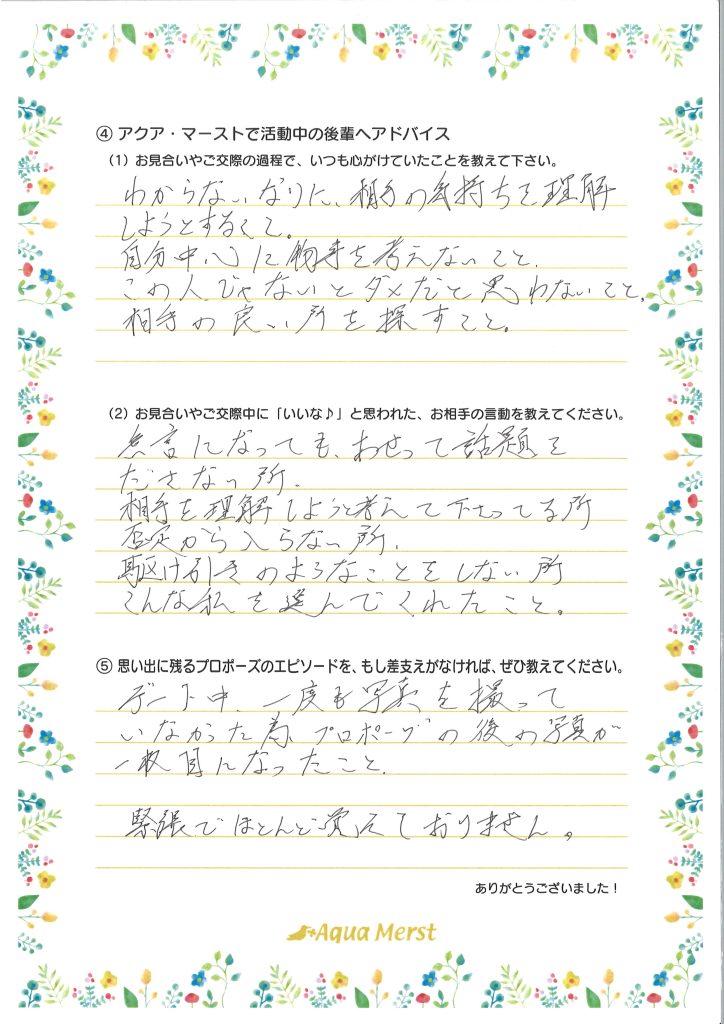 ④ アクア・マーストで活動中の後輩へアドバイス
（1）お見合いやご交際の過程で、いつも心がけていたことを教えて下さい。
わからないなりに、相手の気持ちを理解
しようとすること。
自分中心に物事を考えないこと。
この人じゃないとダメだと思わないこと。
相手の良い所を探すこと。
（2）お見合いやご交際中に「いいな♪」と思われた、お相手の言動を教えてください。
無言になっても、あせって話題を
ださない所。
相手を理解しようと考えて下さってる所
否定から入らない所。
駆け引きのようなことをしない所
こんな私を選んでくれたこと。
⑤ 思い出に残るプロポーズのエピソードを、もし差支えがなければ、ぜひ教えてください。
デート中、一度も写真を撮って
いなかった為 プロポーズの後の写真が
一枚目になったこと。
緊張でほとんど覚えておりません。
ありがとうございました！
Aqua Merst